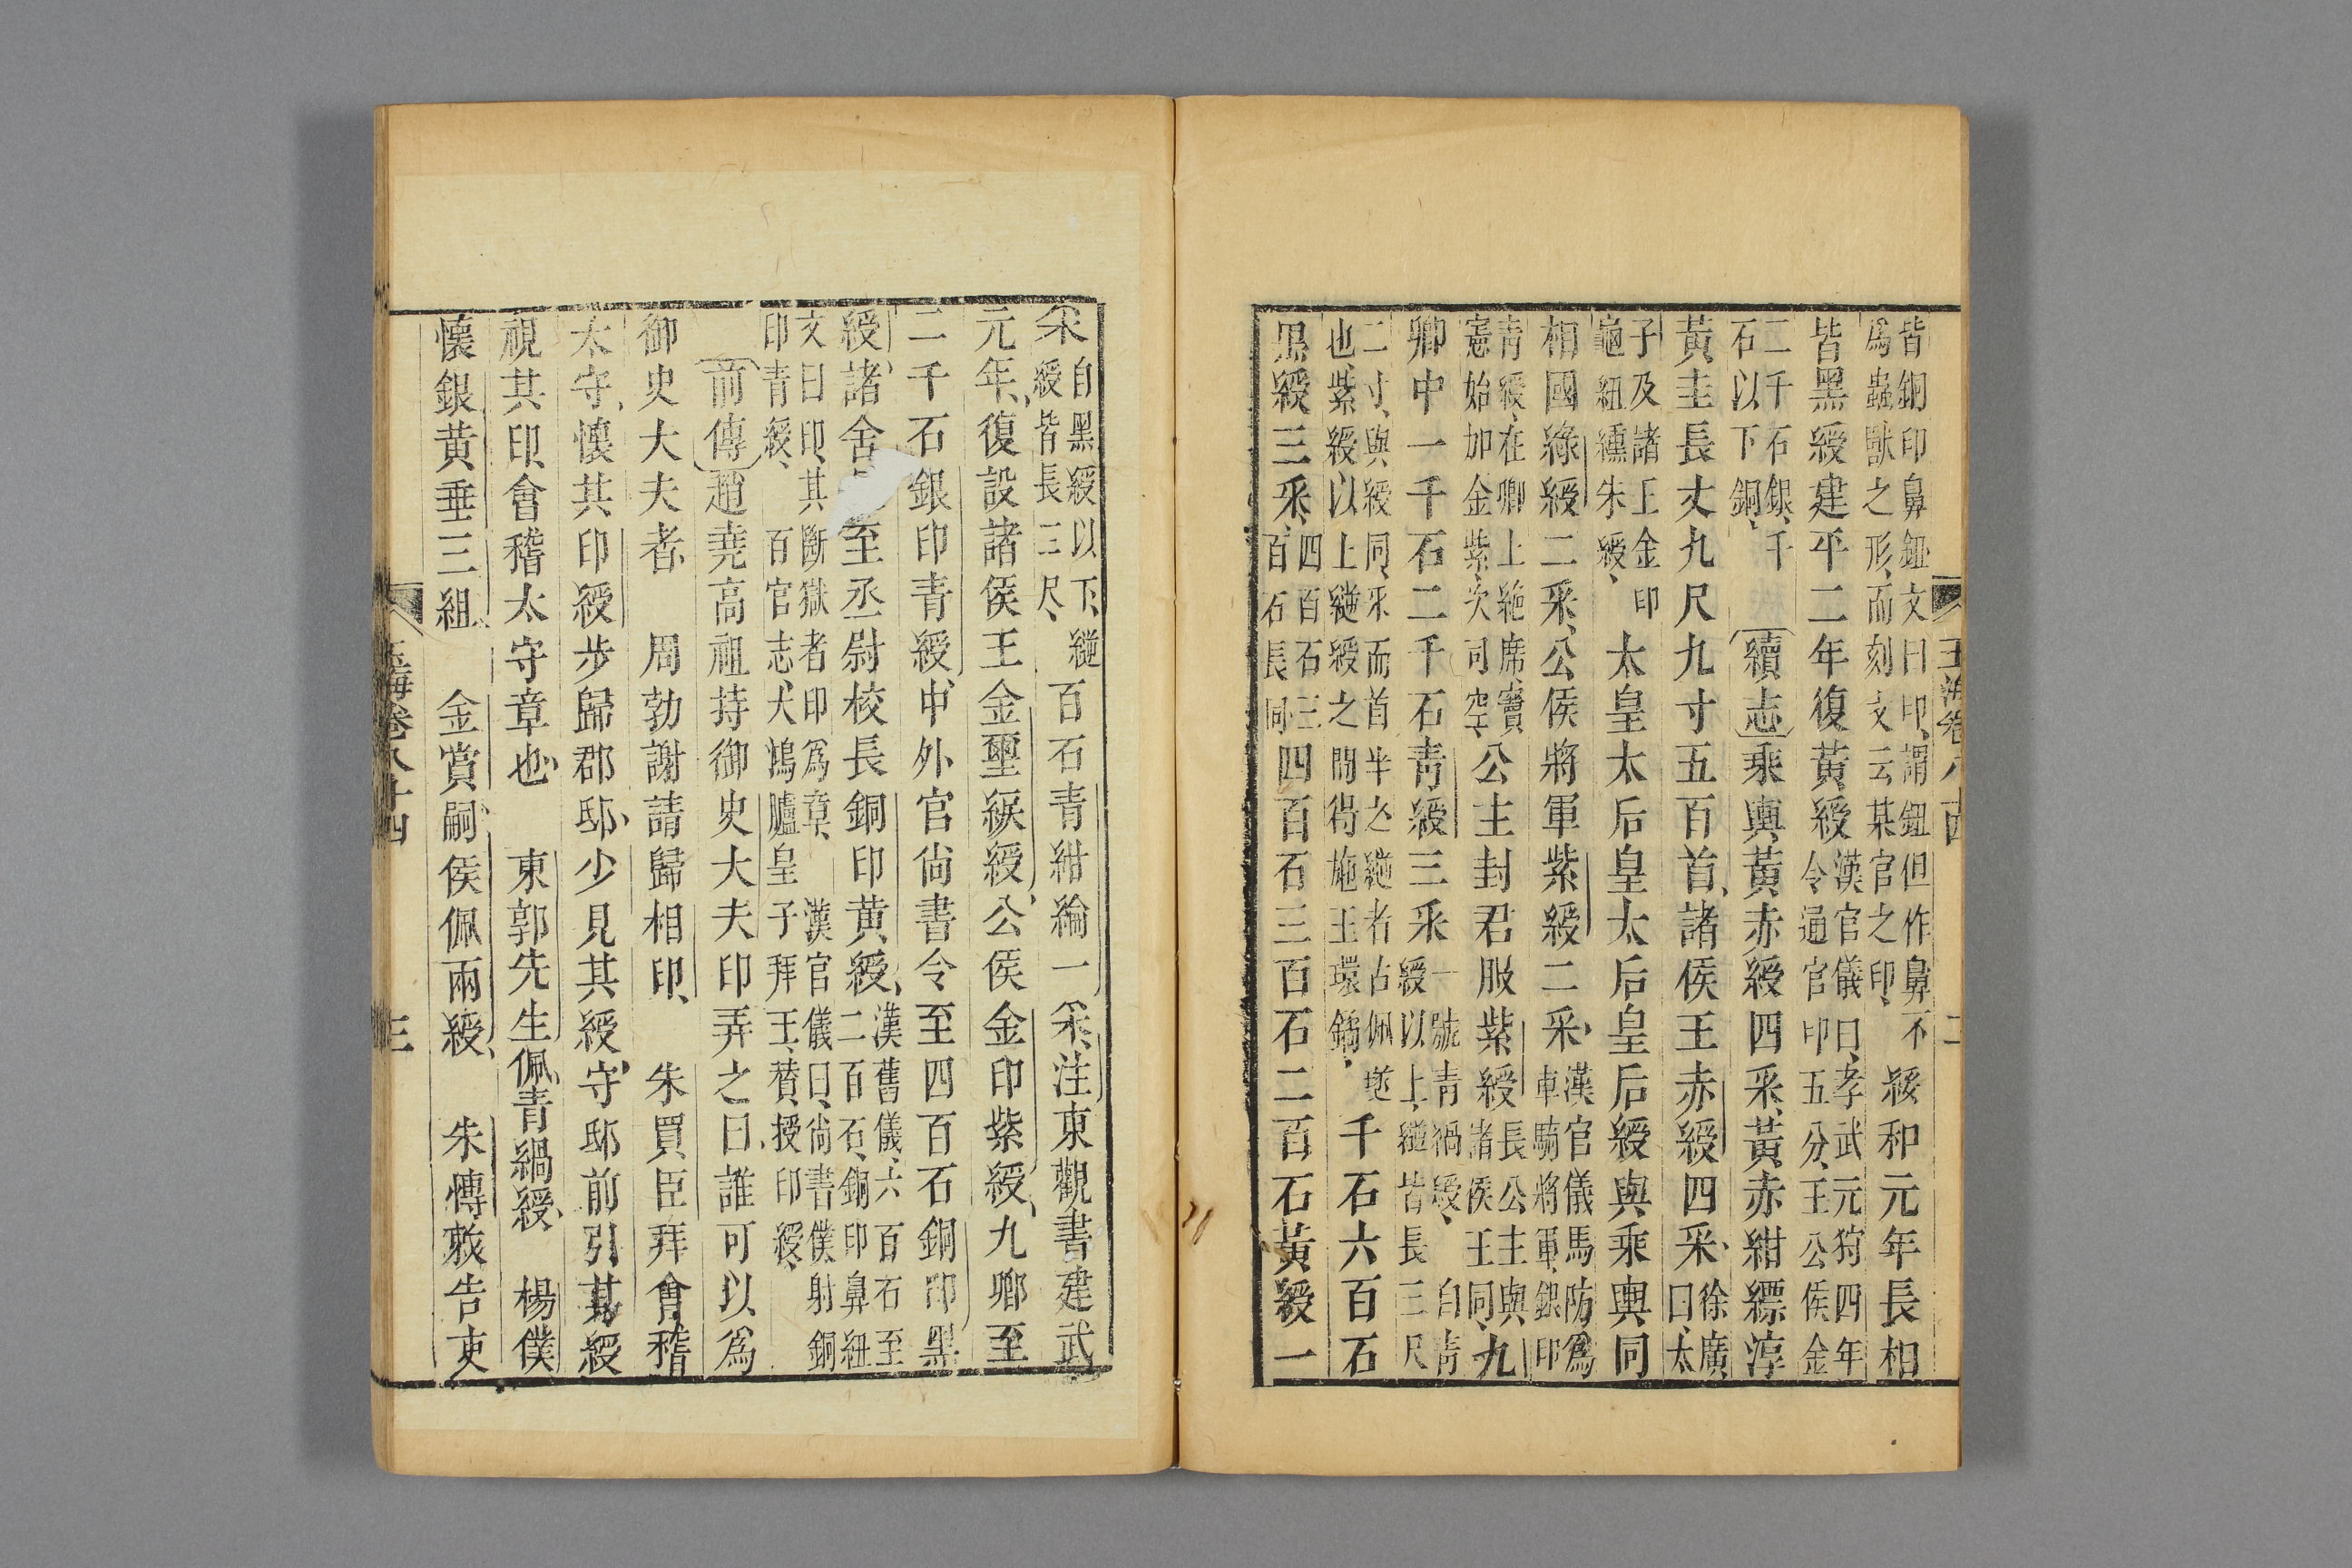 皆銅印鼻鈕文曰印謂鈕但作鼻不
爲蟲獸之形而刻文云某官之印
綏和元年長相
皆黑綬建平二年復黃綬
漢官儀曰孝武元狩四年
令通官印五分王公侯金
二千石銀千
石以下銅
續志乘輿黃赤綬四采黃赤紺縹淳
黃圭長丈九尺九寸五百首諸侯王赤綬四采
徐廣
曰太
子及諸王金印
龜紐纁朱綬
太皇太后皇太后皇后綬與乘輿同
相國綠綬二采公侯將軍紫綬二采
漢官儀馬防爲
車騎將軍銀印
青綬在卿上絶席竇
憲始加金紫次司空
公主封君服紫綬
長公主與
諸侯王同
九
卿中二千石二千石青綬三采
一號青緺綬自青
綬以上縌皆長三尺
二寸與綬同采而首半之縌者古佩璲
也紫綬以上縌綬之間得施玉環鐍
千石六百石
黑綬三采
四百石三
百石長同
四百石三百石二百石黃綬一
玉海卷八十四
二
采
自黑綬以下縌
綬皆長三尺
百石青紺綸一采注東觀書建武
元年復設諸侯王金璽綟綬公侯金印紫綬九卿至
二千石銀印青綬中外官尙書令至四百石銅印黑
綬諸舍至丞尉校長銅印黃綬
漢舊儀六百石至
二百石銅印鼻紐
文曰印其斷獄者印爲章
漢官儀曰尙書僕射銅
印青綬
百官志大鴻臚皇子拜王贊授印綬
前傳趙堯高祖持御史大夫印弄之曰誰可以爲
御史大夫者
周勃謝請歸相印
朱買臣拜會稽
太守懷其印綬步歸郡邸少見其綬守邸前引其綬
視其印會稽太守章也
東郭先生佩青緺綬
楊僕
懷銀黃垂三組
金賞嗣侯佩兩綬
朱博敕告吏
玉海卷八十四
三